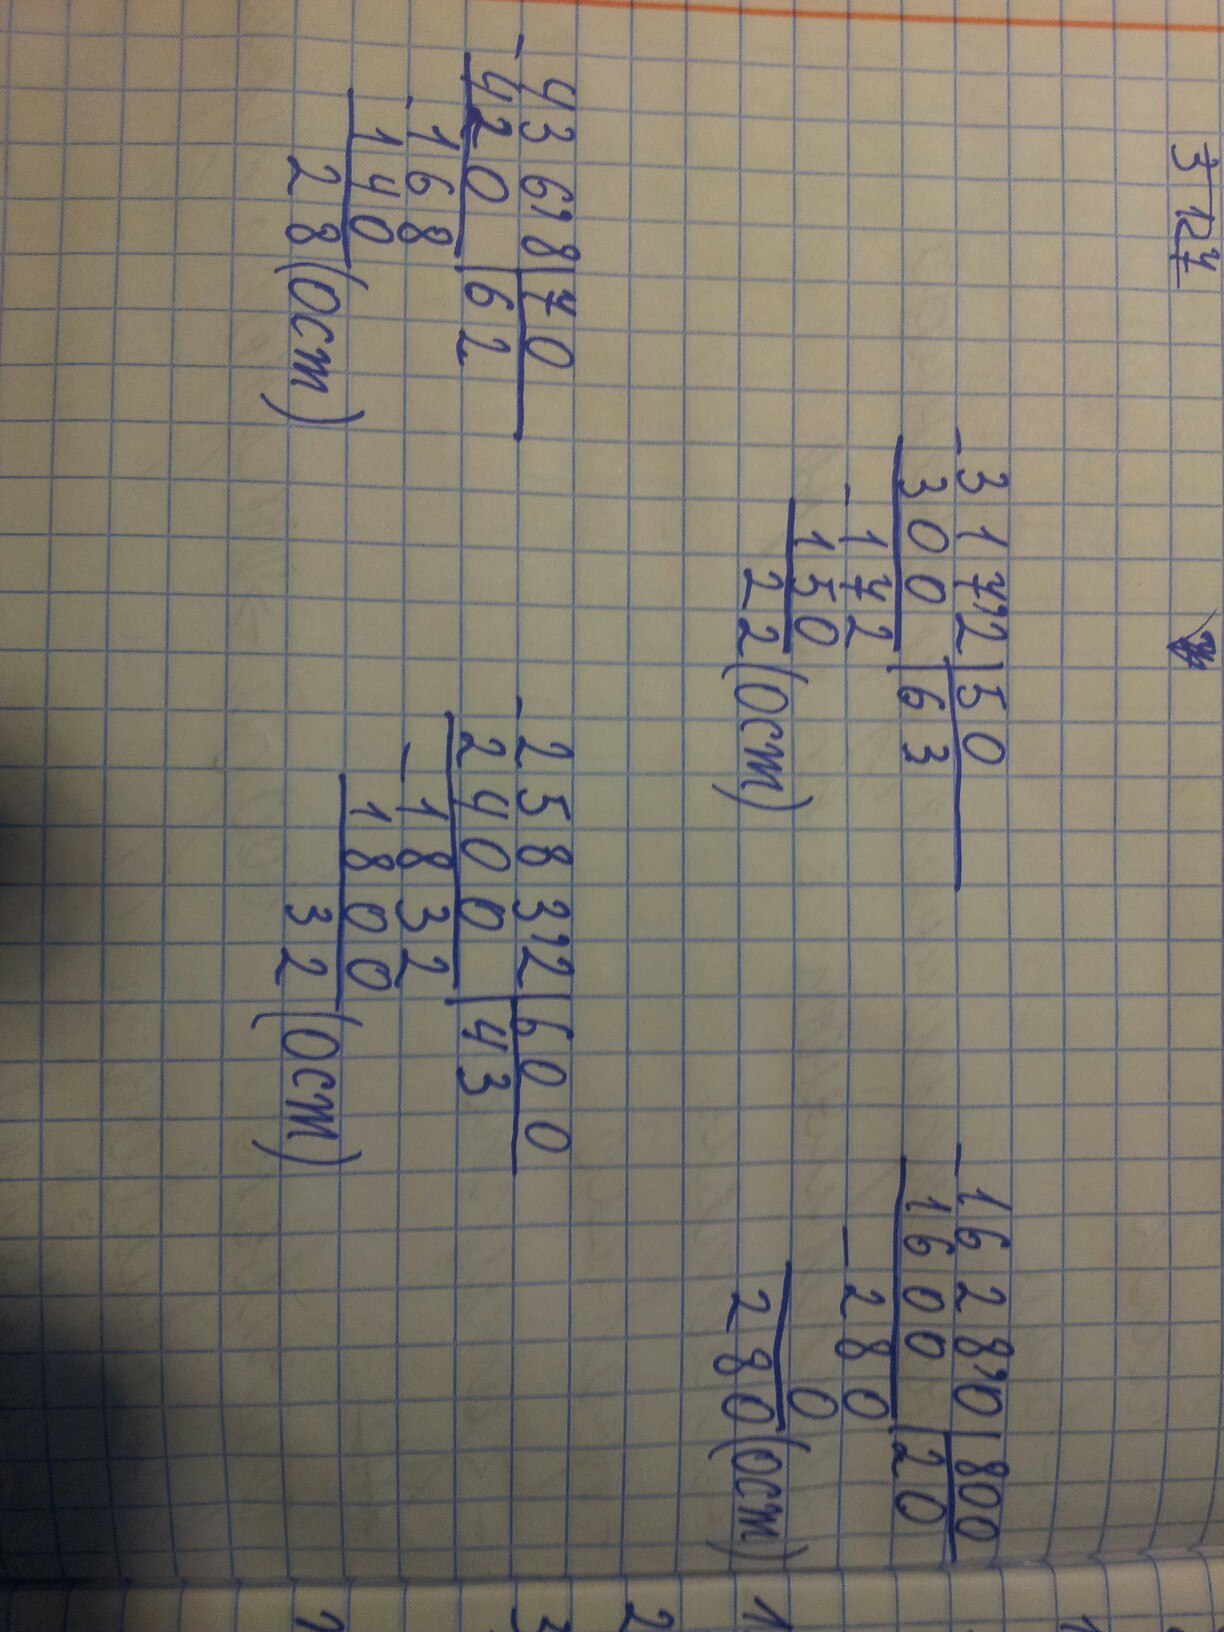 127
- 317'2 | 50
300 | 63
- 172
150
22 (ост)
- 1628'0 | 800
1600 | 20
- 280
0
280 (ост)
- 436'8 | 70
420 | 62
- 168
140
28 (ост)
- 2583'2 | 600
2400 | 43
- 1832
1800
32 (ост)